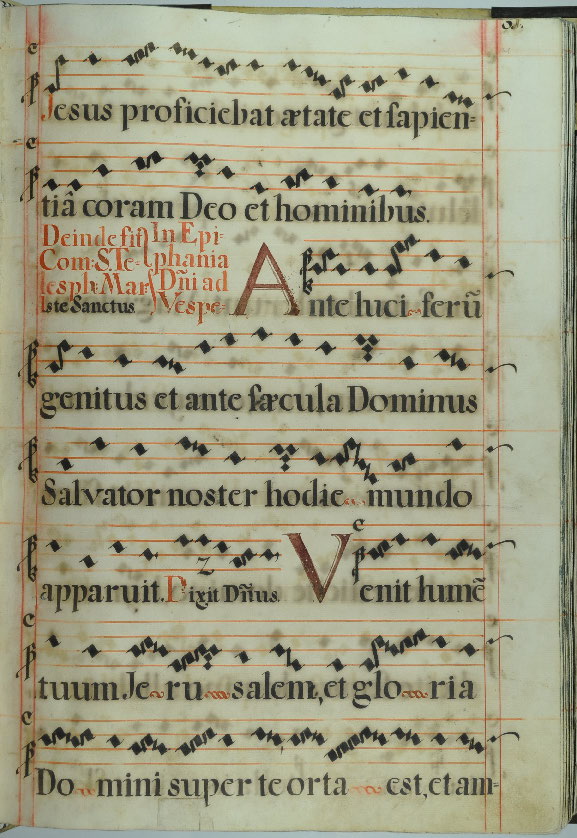 Jesus proficiebat ætate et sapien=
tiâ coram Deo et hominibus.
Deinde fit
Com. S. Te-
lesph. Mar
Iste Sanctus
In Epi-
phania
Dñi ad
Vespe-
Ante luci ferũ
genitus et ante sæcula Dominus
Salvator noster hodie mundo
apparuit. Dixit Dñus. Venit lumẽ
tuum Je ru salem, et glo ria
Do mini super te orta est, et am-